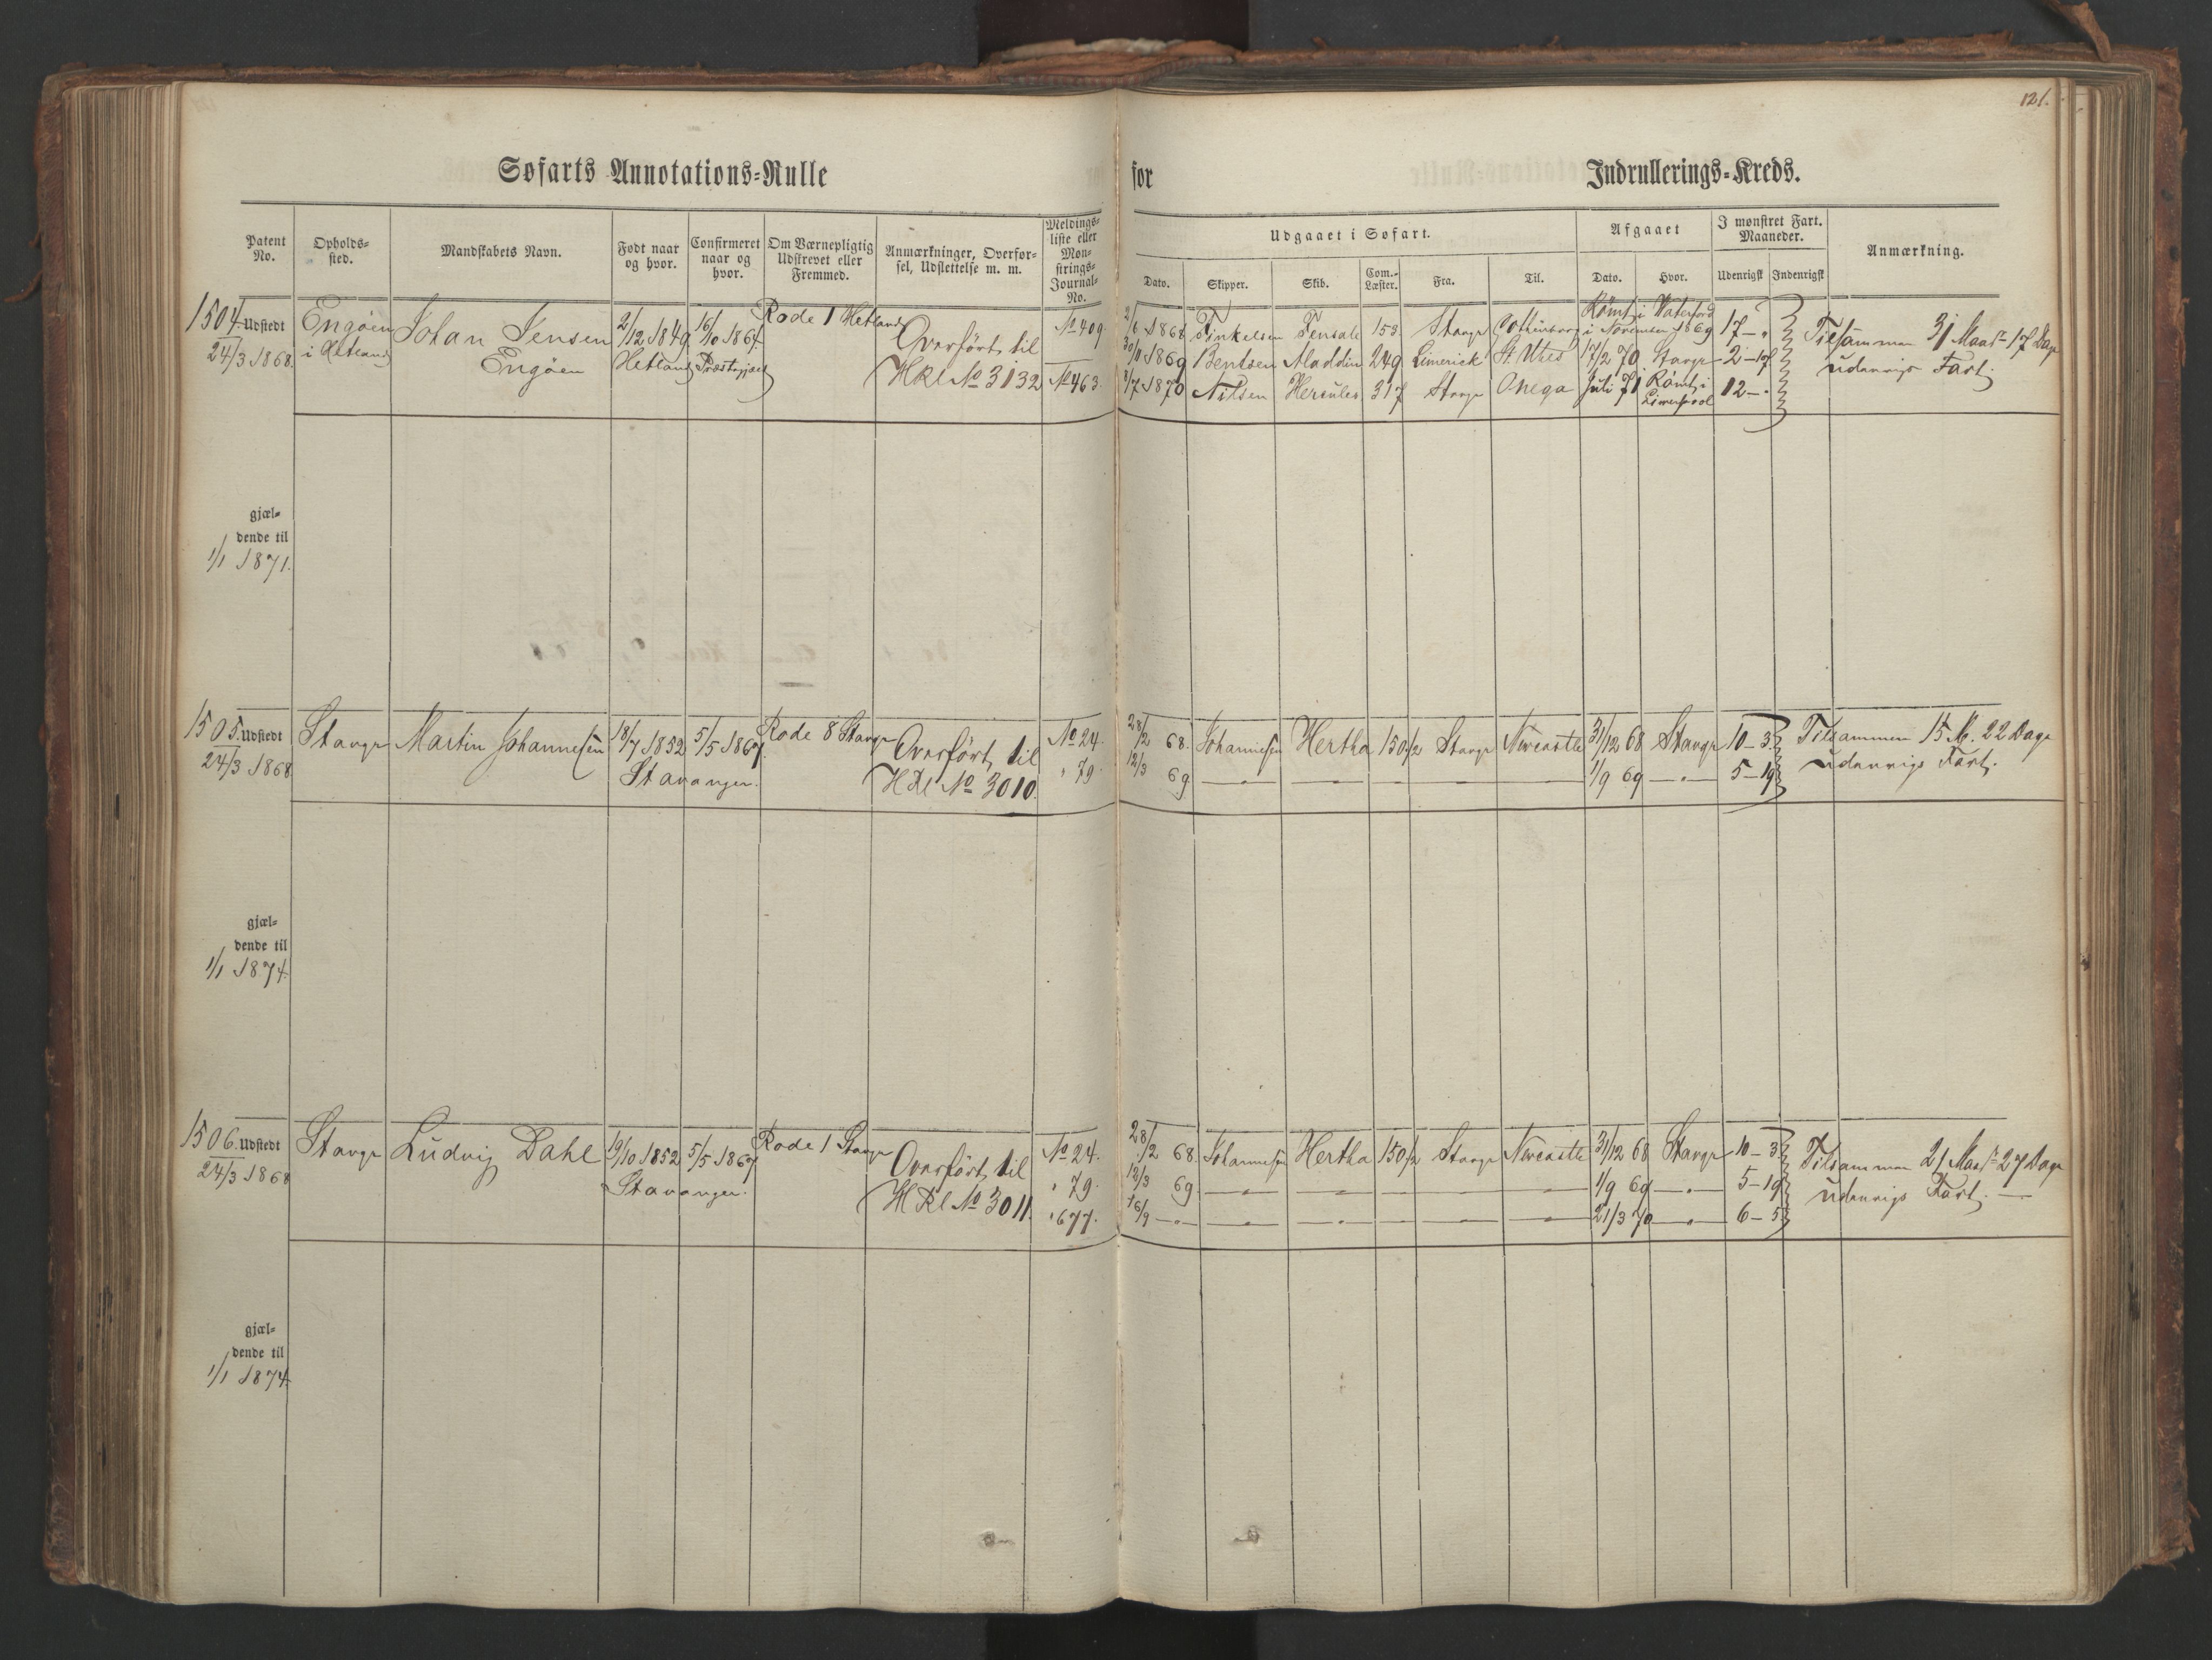 121.
Søfarts Annotations=Rulle for Indrullerings=Kreds.
Patent No.
Opholds=sted.
Mandskabets Navn.
Født naar og hvor.
Confirmeret naar og hvor.
Om Værnepligtig Udskrevet eller Fremmed.
Anmærkninger, Overfør=sel, Udslettelse m. m.
Meldings=liste eller Møn=strings=Journal=No.
Udgaaet i Søfart.
Dato.
Skipper.
Skib.
Com.=Læster.
Fra.
Til.
Afgaaet
Dato.
Hvor.
I mønstret Fart. Maaneder.
Udenrigsk
Indenrigsk
Anmærkning.
1504. Udstedt
24/3 1868.
Engøen
i Hetland
Johan Jensen
Engøen
2/12 1849
Hetland
16/10 1864
Præstegjæld
Rode 1 Hetland
Overført til
HRl No 3132
No 409.
No 463.
2/6 1868 Tinkelsen 158 Stavgr Gothenborg Rømt i Waterford i November 1869 17 — "
30/11 1869 Bentsen Aladdin 249 Limerick St Ubes 17/2 70 Stavgr 2 — 17
7 1870 Nilsen Hercules 317 Stavgr Onega Juli 71 Rømt i Liverpool 12 — "
Tilsammen 31 Maar 17 Dage
udenrigs Fart.
gjæl=
dende til
1/1 1871.
1505. Udstedt
24/3 1868
Stavgr
Martin Johannesen
18/7 1852
Stavanger.
5/5 1867.
Rode 8 Stavgr
Overført til
HRl No 3010.
No 24.
" 79.
28/2 68. Johannesen Hertha 150 1/2 Stavgr Newcastle 31/12 68 Stavgr 10 — 3
12/3 69 — " — — " — — " — 1/9 69 — " — 5 — 19
Tilsammen 15 M. 22 Dage
udenrigs Fart.
gjæl=
dende til
1/1 1874.
1506. Udstedt
24/3 1868
Stavgr
Ludvig Dahl
19/10 1852
Stavanger.
5/5 1867
Rode 1 Stavgr
Overført til
HRl No 3011.
No 24.
" 79.
" 677.
28/2 68. Johannesen Hertha 150 1/2 Stavgr Newcastle 31/12 68 Stavgr 10 — 3
12/3 69. — " — — " — — " — — " — — " — 1/9 69 — " — 5 — 19
16/9 — " — — " — — " — — " — — " — — " — 21/3 70 — " — 6 — 5
Tilsammen 21 Maar 27 Dage
udenrigs Fart. —
gjæl=
dende til
1/1 1874.